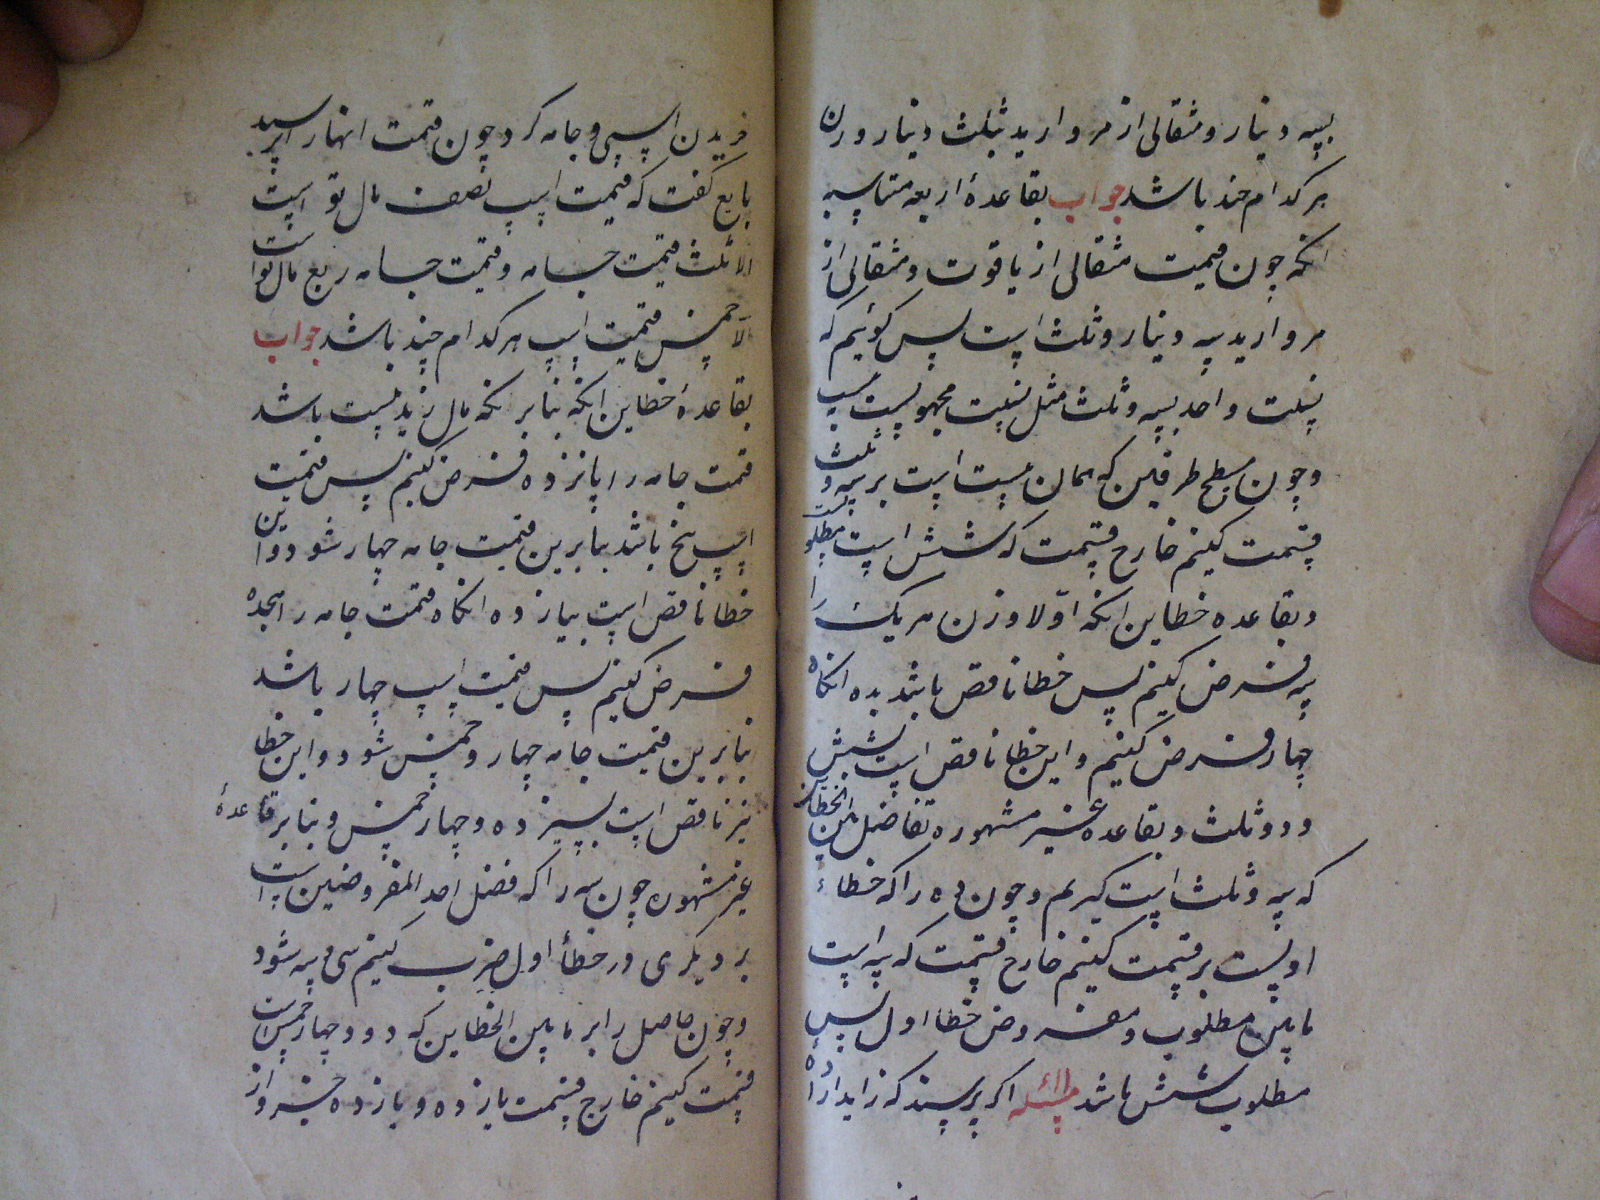 بسه دینار و مثقالی از مروارید بثلث دینار وزن
هر کدام چند باشد جواب بقاعدهٔ اربعه متناسبه
انکه چون قیمت مثقالی از یاقوت و مثقالی از
مروارید سه دینار و ثلث است پس کوئیم که
نسبت واحد بسه و ثلث مثل نسبت مجهولست به بیست
و چون مسطح طرفین که همان بیست است بر سه و ثلث
قسمت کنیم خارج قسمت که شش است مطلوبست
و بقاعده خطاین انکه اوّلا وزن هر یک را
سه فرض کنیم پس خطا ناقص باشد بده انکاه
چهار فرض کنیم و این خطا ناقص است بشش
و دو ثلث و بقاعده غیر مشهوره تفاضل بین الخطاین
که سه و ثلث است کیریم و چون ده را که خطاء
اولست بر قسمت کنیم خارج قسمت که سه است
مابین مطلوب و مفروض خطا اول پس
مطلوب شش باشد مسئله اکر پرسند که زید اراده
خریدن اسپی و جامه کرد چون قیمت انها را پرسید
بایع کفت که قیمت اسپ نصف مال تو است
الا ثلث قیمت جامه و قیمت جامه ربع مال تو است
الا خمس قیمت اسپ هر کدام چند باشد جواب
بقاعدهٔ خطاین انکه بنابر انکه مال زید بیست باشد
قیمت جامه را پانزده فرض کنیم پس قیمت
اسپ پنج باشد بنابرین قیمت جامه چهار شود و این
خطا ناقص است بیازده انکاه قیمت جامه را هجده
فرض کنیم پس قیمت اسپ چهار باشد
بنابرین قیمت جامه چهار و خمس شود و این خطا
نیز ناقص است بسیزده و چهار خمس و بنابر قاعدهٔ
غیر مشهوره چون سه را که فضل احد المفروضین است
بر دیکری در خطأ اول ضرب کنیم سی و سه شود
و چون حاصل را بر مابین الخطاین که دو و چهار خمس است
قسمت کنیم خارج قسمت یازده و یازده جزو از